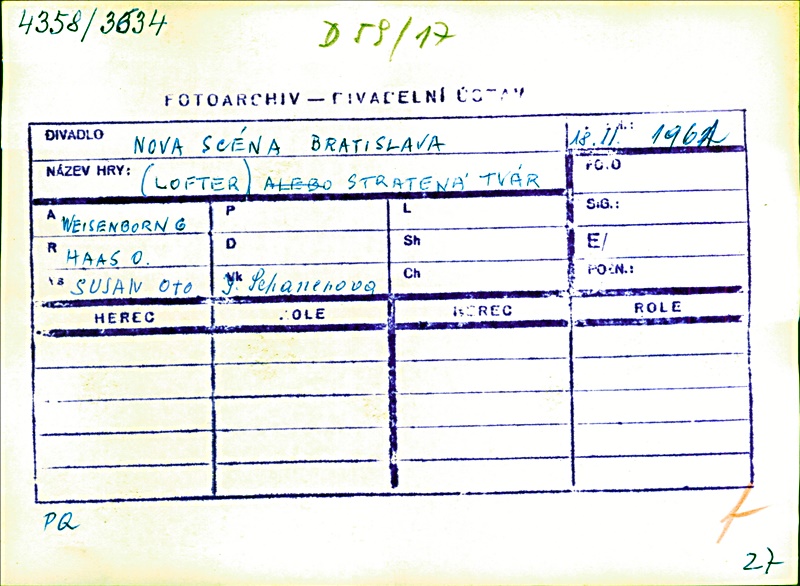 4358/3634
D 59/17
FOTOARCHIV — DIVADELNÍ ÚSTAV
DIVADLO NOVA SCÉNA BRATISLAVA 18. II. 1961
NÁZEV HRY: (LOFTER) ALEBO STRATENÁ TVÁR
A WEISENBORN G P L SIG.:
R HAAS O. D Sh E/
SUSAN OTO Vk Ch POZN.:
HEREC ROLE HEREC ROLE
PQ
27